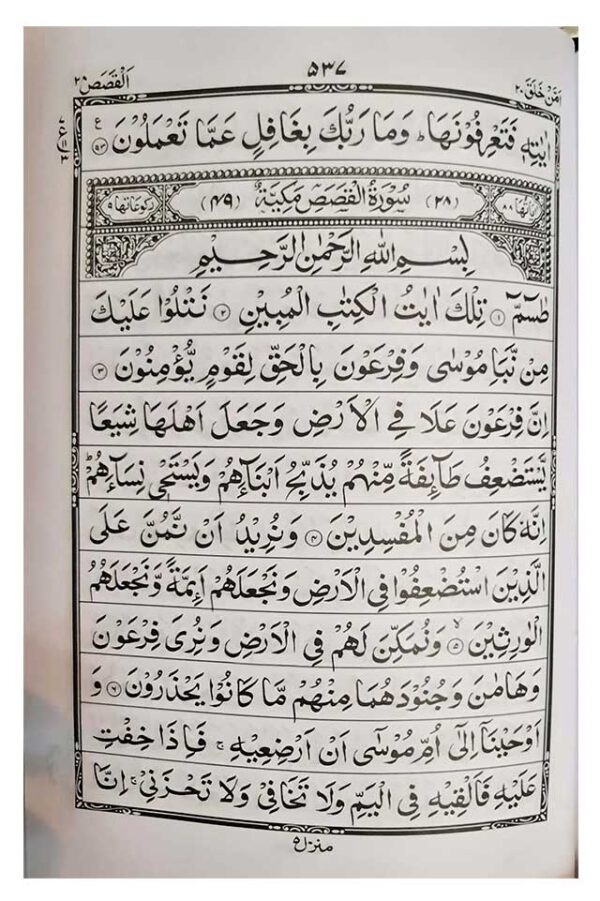 اَلْقَصَص ٢٨
٥٣٧
اَمَّنْ خَلَقَ ٢٠
اٰيٰتِهٖ فَتَعْرِفُوْنَهَا ؕ وَمَا رَبُّكَ بِغَافِلٍ عَمَّا تَعْمَلُوْنَ ﴿٩٣﴾ ع
اٰيَاتُهَا ٨٨ (٢٨) سُوْرَةُ الْقَصَصِ مَكِّيَّةٌ (٤٩) رُكُوْعَاتُهَا ٩
بِسْمِ اللّٰهِ الرَّحْمٰنِ الرَّحِيْمِ
طٰسٓمّٓ ﴿١﴾ تِلْكَ اٰيٰتُ الْكِتٰبِ الْمُبِيْنِ ﴿٢﴾ نَتْلُوْا عَلَيْكَ
مِنْ نَّبَاِ مُوْسٰى وَفِرْعَوْنَ بِالْحَقِّ لِقَوْمٍ يُّؤْمِنُوْنَ ﴿٣﴾
اِنَّ فِرْعَوْنَ عَلَا فِى الْاَرْضِ وَجَعَلَ اَهْلَهَا شِيَعًا
يَّسْتَضْعِفُ طَآئِفَةً مِّنْهُمْ يُذَبِّحُ اَبْنَآءَهُمْ وَيَسْتَحْىٖ نِسَآءَهُمْ ؕ
اِنَّهٗ كَانَ مِنَ الْمُفْسِدِيْنَ ﴿٤﴾ وَنُرِيْدُ اَنْ نَّمُنَّ عَلَى
الَّذِيْنَ اسْتُضْعِفُوْا فِى الْاَرْضِ وَنَجْعَلَهُمْ اَئِمَّةً وَّنَجْعَلَهُمُ
الْوٰرِثِيْنَ ﴿٥﴾ ۙ وَنُمَكِّنَ لَهُمْ فِى الْاَرْضِ وَنُرِىَ فِرْعَوْنَ
وَهَامٰنَ وَجُنُوْدَهُمَا مِنْهُمْ مَّا كَانُوْا يَحْذَرُوْنَ ﴿٦﴾ وَ
اَوْحَيْنَآ اِلٰٓى اُمِّ مُوْسٰٓى اَنْ اَرْضِعِيْهِ ۚ فَاِذَا خِفْتِ
عَلَيْهِ فَاَلْقِيْهِ فِى الْيَمِّ وَلَا تَخَافِىْ وَلَا تَحْزَنِىْ ۚ اِنَّا
منزل ٥